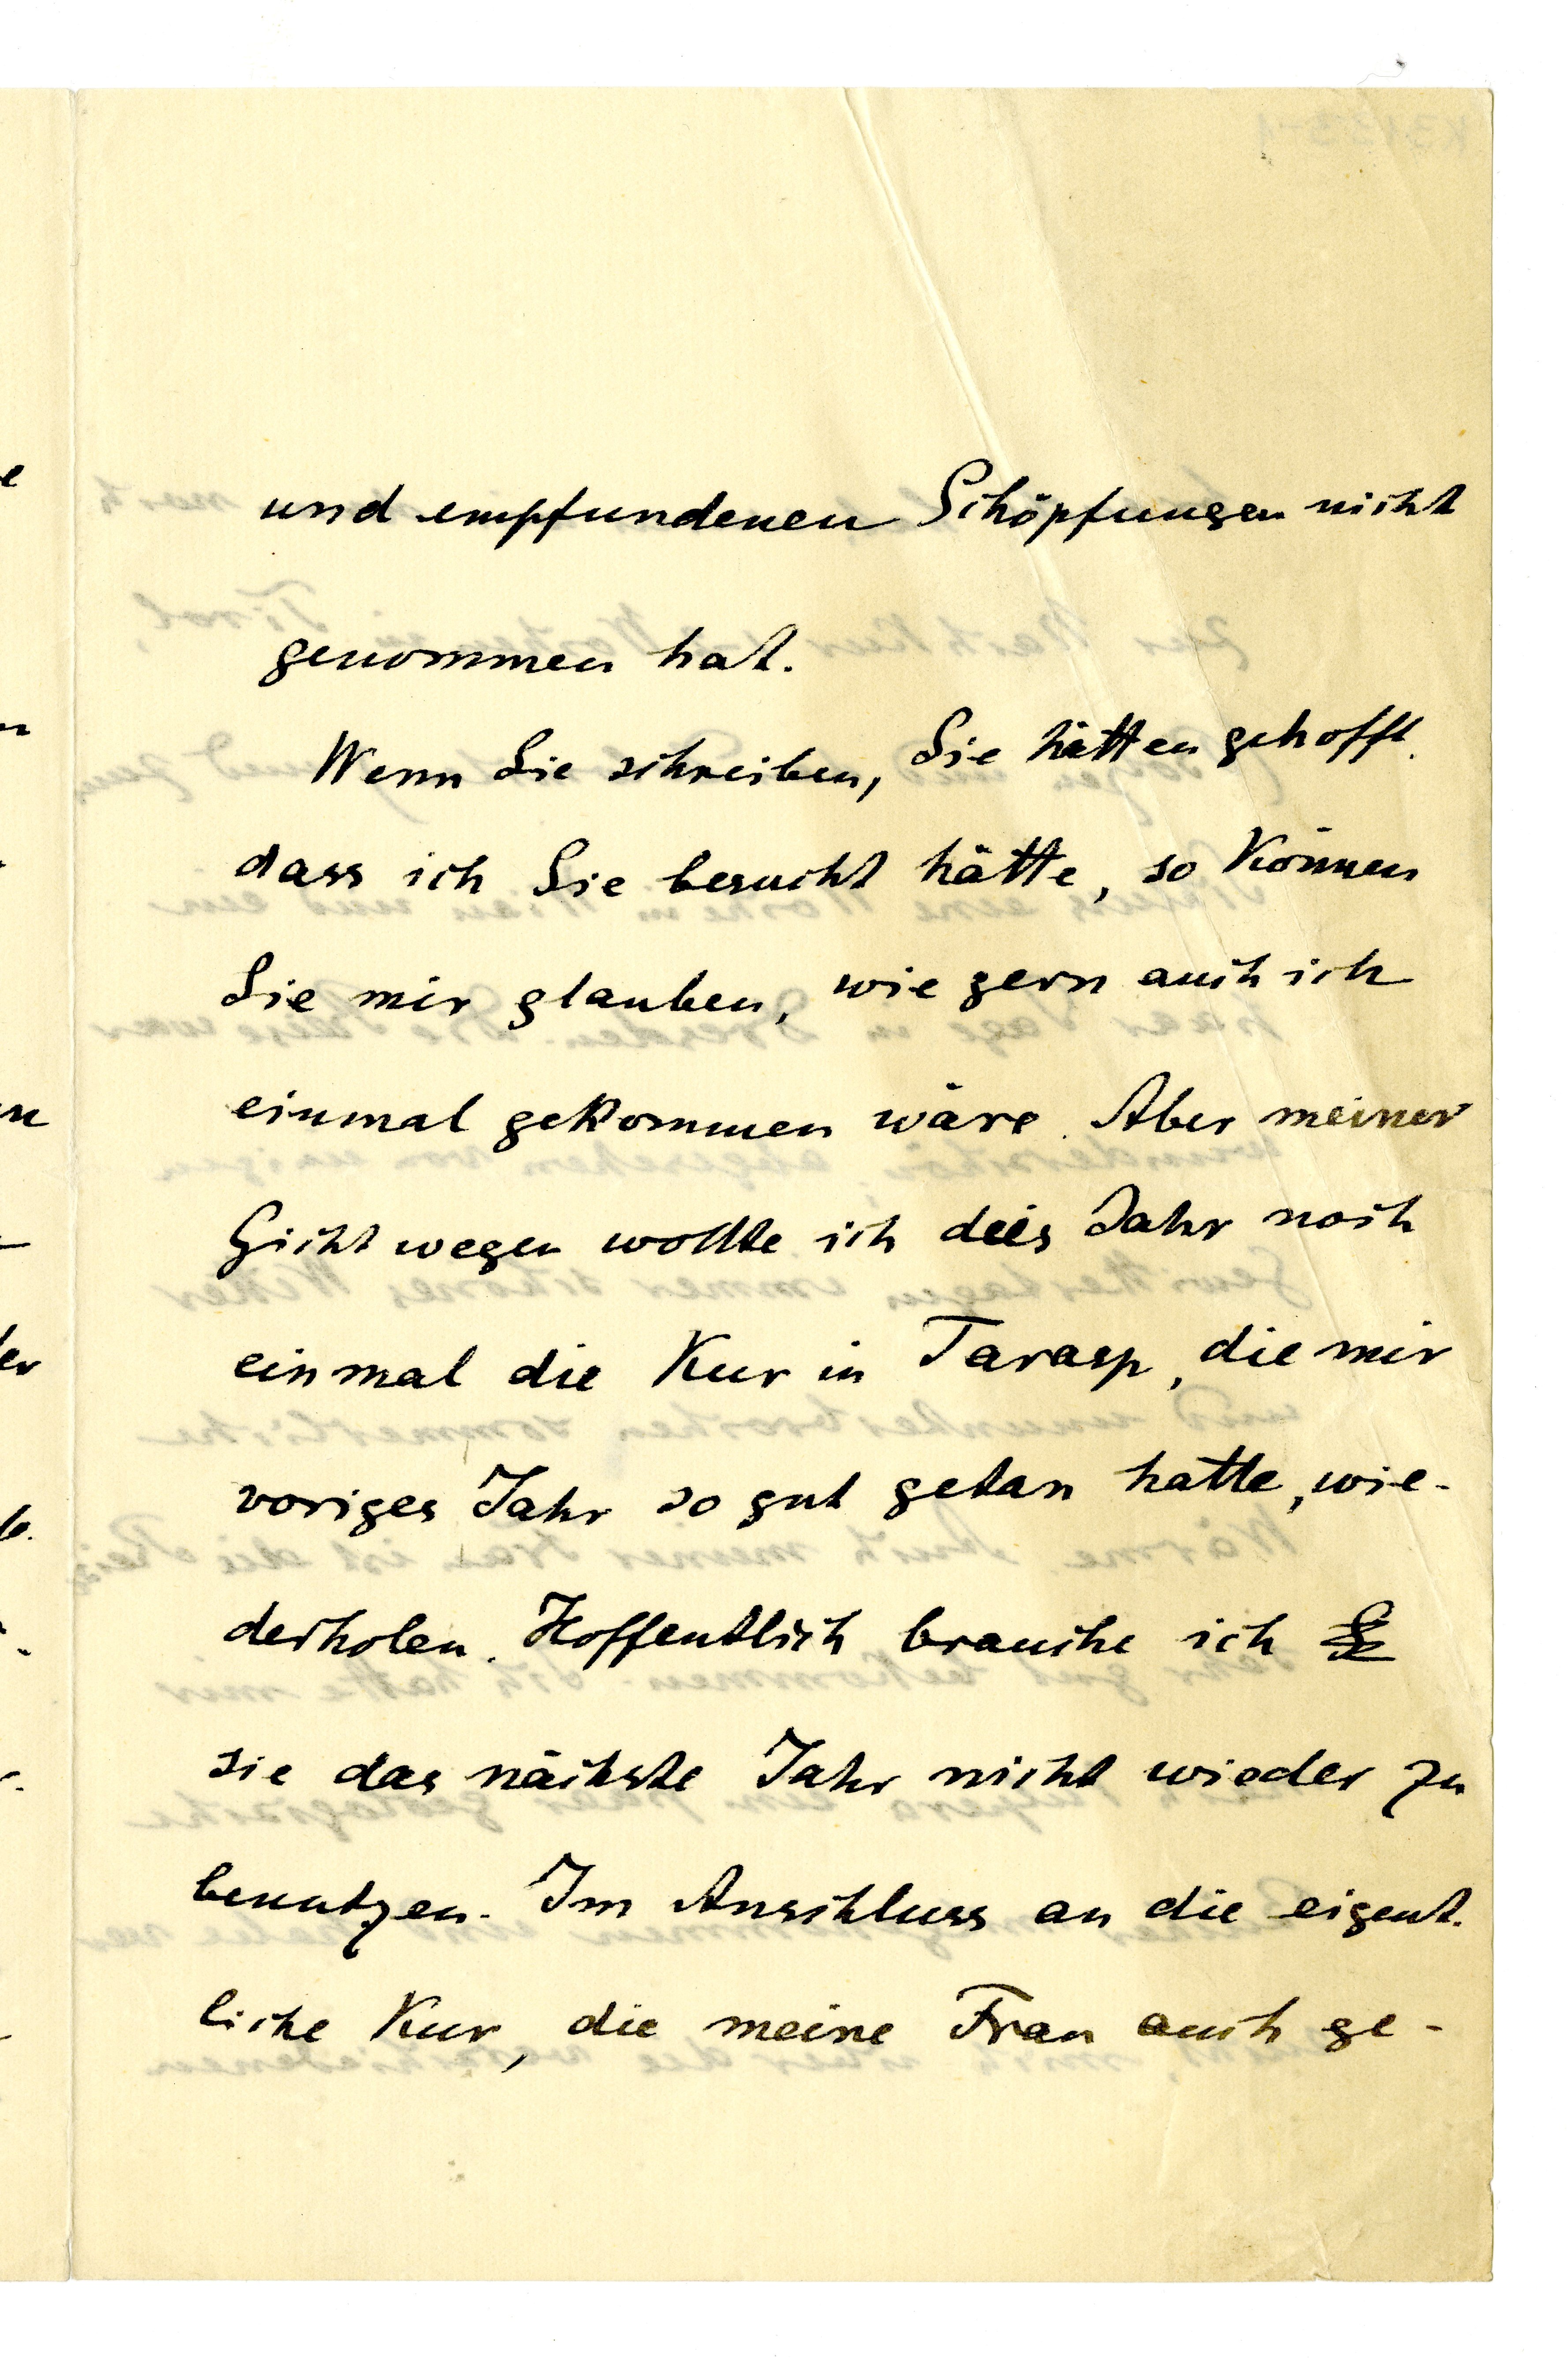 und empfundenen Schöpfungen nicht
genommen hat.
Wenn Sie schreiben, Sie hätten gehofft.
dass ich Sie besucht hätte, so können
Sie mir glauben, wie gern auch ich
einmal gekommen wäre. Aber meiner
Gicht wegen wollte ich dies Jahr noch
einmal die Kur in Tarasp, die mir
voriges Jahr so gut getan hatte, wie-
derholen. Hoffentlich brauche ich
sie das nächste Jahr nicht wieder zu
benutzen. Im Anschluss an die eigent.
liche Kur, die meine Frau auch ge-